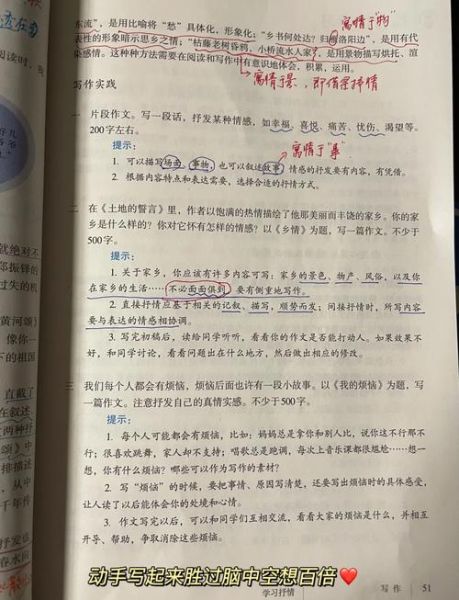 寓情于"物"
东流",是用比喻将"愁"具体化,形象化;"乡书何处达?归雁洛阳边",是用有代
表性的形象暗示思乡之情;"枯藤老树昏鸦,小桥流水人家",是用景物描写烘托、渲
染感情。这种种方法需要在阅读和写作中有意识地体会,积累,运用。
寓情于景,即借景抒情
写作实践
一 片段作文。写一段话,抒发某种情感,如幸福、喜悦、痛苦、忧伤、渴望等。
200字左右。
提示:
寓情于"事"
1. 可以描写场面、事物,也可以叙述故事,情感的抒发要有内容,有凭借。
2. 根据内容特点和表达需要,选择合适的抒情方式。
二 在《土地的誓言》里,作者以饱满的热情描绘了他那美丽而丰饶的家乡。你的家
乡是什么样的?你对它怀有怎样的情感?以《乡情》为题,写一篇作文。不少于
500字。
提示:
1. 关于家乡,你应该有许多内容可写:家乡的景色、物产、风俗,以及你
在家乡的生活……不必面面俱到,要有侧重地写作。
2. 直接抒情应基于相关的记叙、描写,顺势而发;间接抒情时,所写内容
要与表达的情感相协调。
3. 写完初稿后,读给同学听听,看看你的作文是否能打动人。如果效果不
好,和同学讨论,看看问题出在什么地方,然后做出相应的修改。
三 我们每个人都会有烦恼,烦恼后面也许有一段小故事。以《我的烦恼》为题,写
一篇作文。注意抒发自己的真情实感。不少于500字。
提示:
1. 每个人可能都会有烦恼,比如:妈妈总是拿你和别人比,说你这不行那不
行;很喜欢跳舞,家人却不支持;唱歌总是跑调,每次上音乐课都很尴尬……想一
想,你有什么烦恼?哪些可以作为写作的素材?
2. 写"烦恼"的时候,要把事情、原因写清楚,还要写出当时的具体感受,
让人读了以后能体会你的处境和心情。
3. 作文写完以后,可以和同学们互相交流,看看大家的烦恼是什么,并相互
开导、帮助,争取消除这些烦恼。
动手写起来胜过脑中空想百倍❤
学习抒情
写作 51